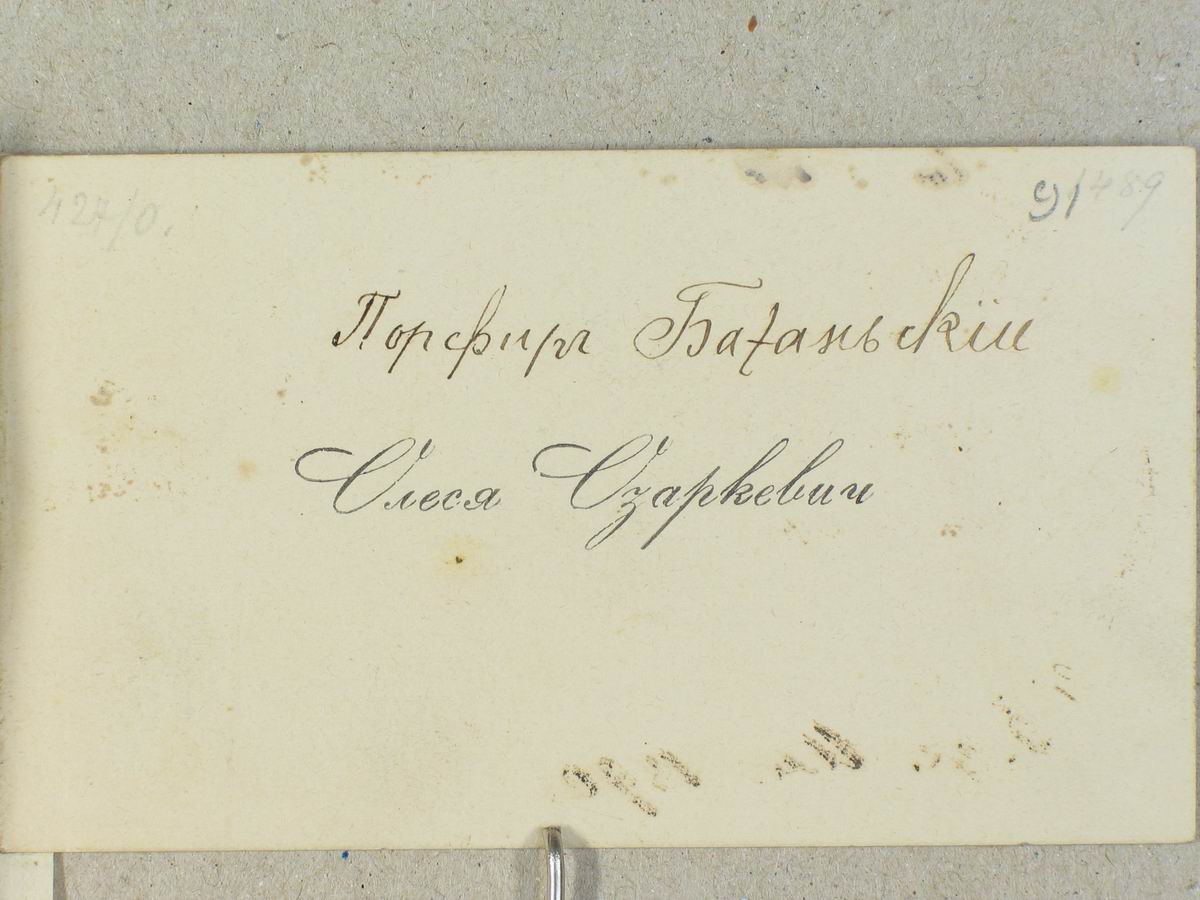 427/0.
91/489
Порфир Бажаньскій
Олеся Озаркевич